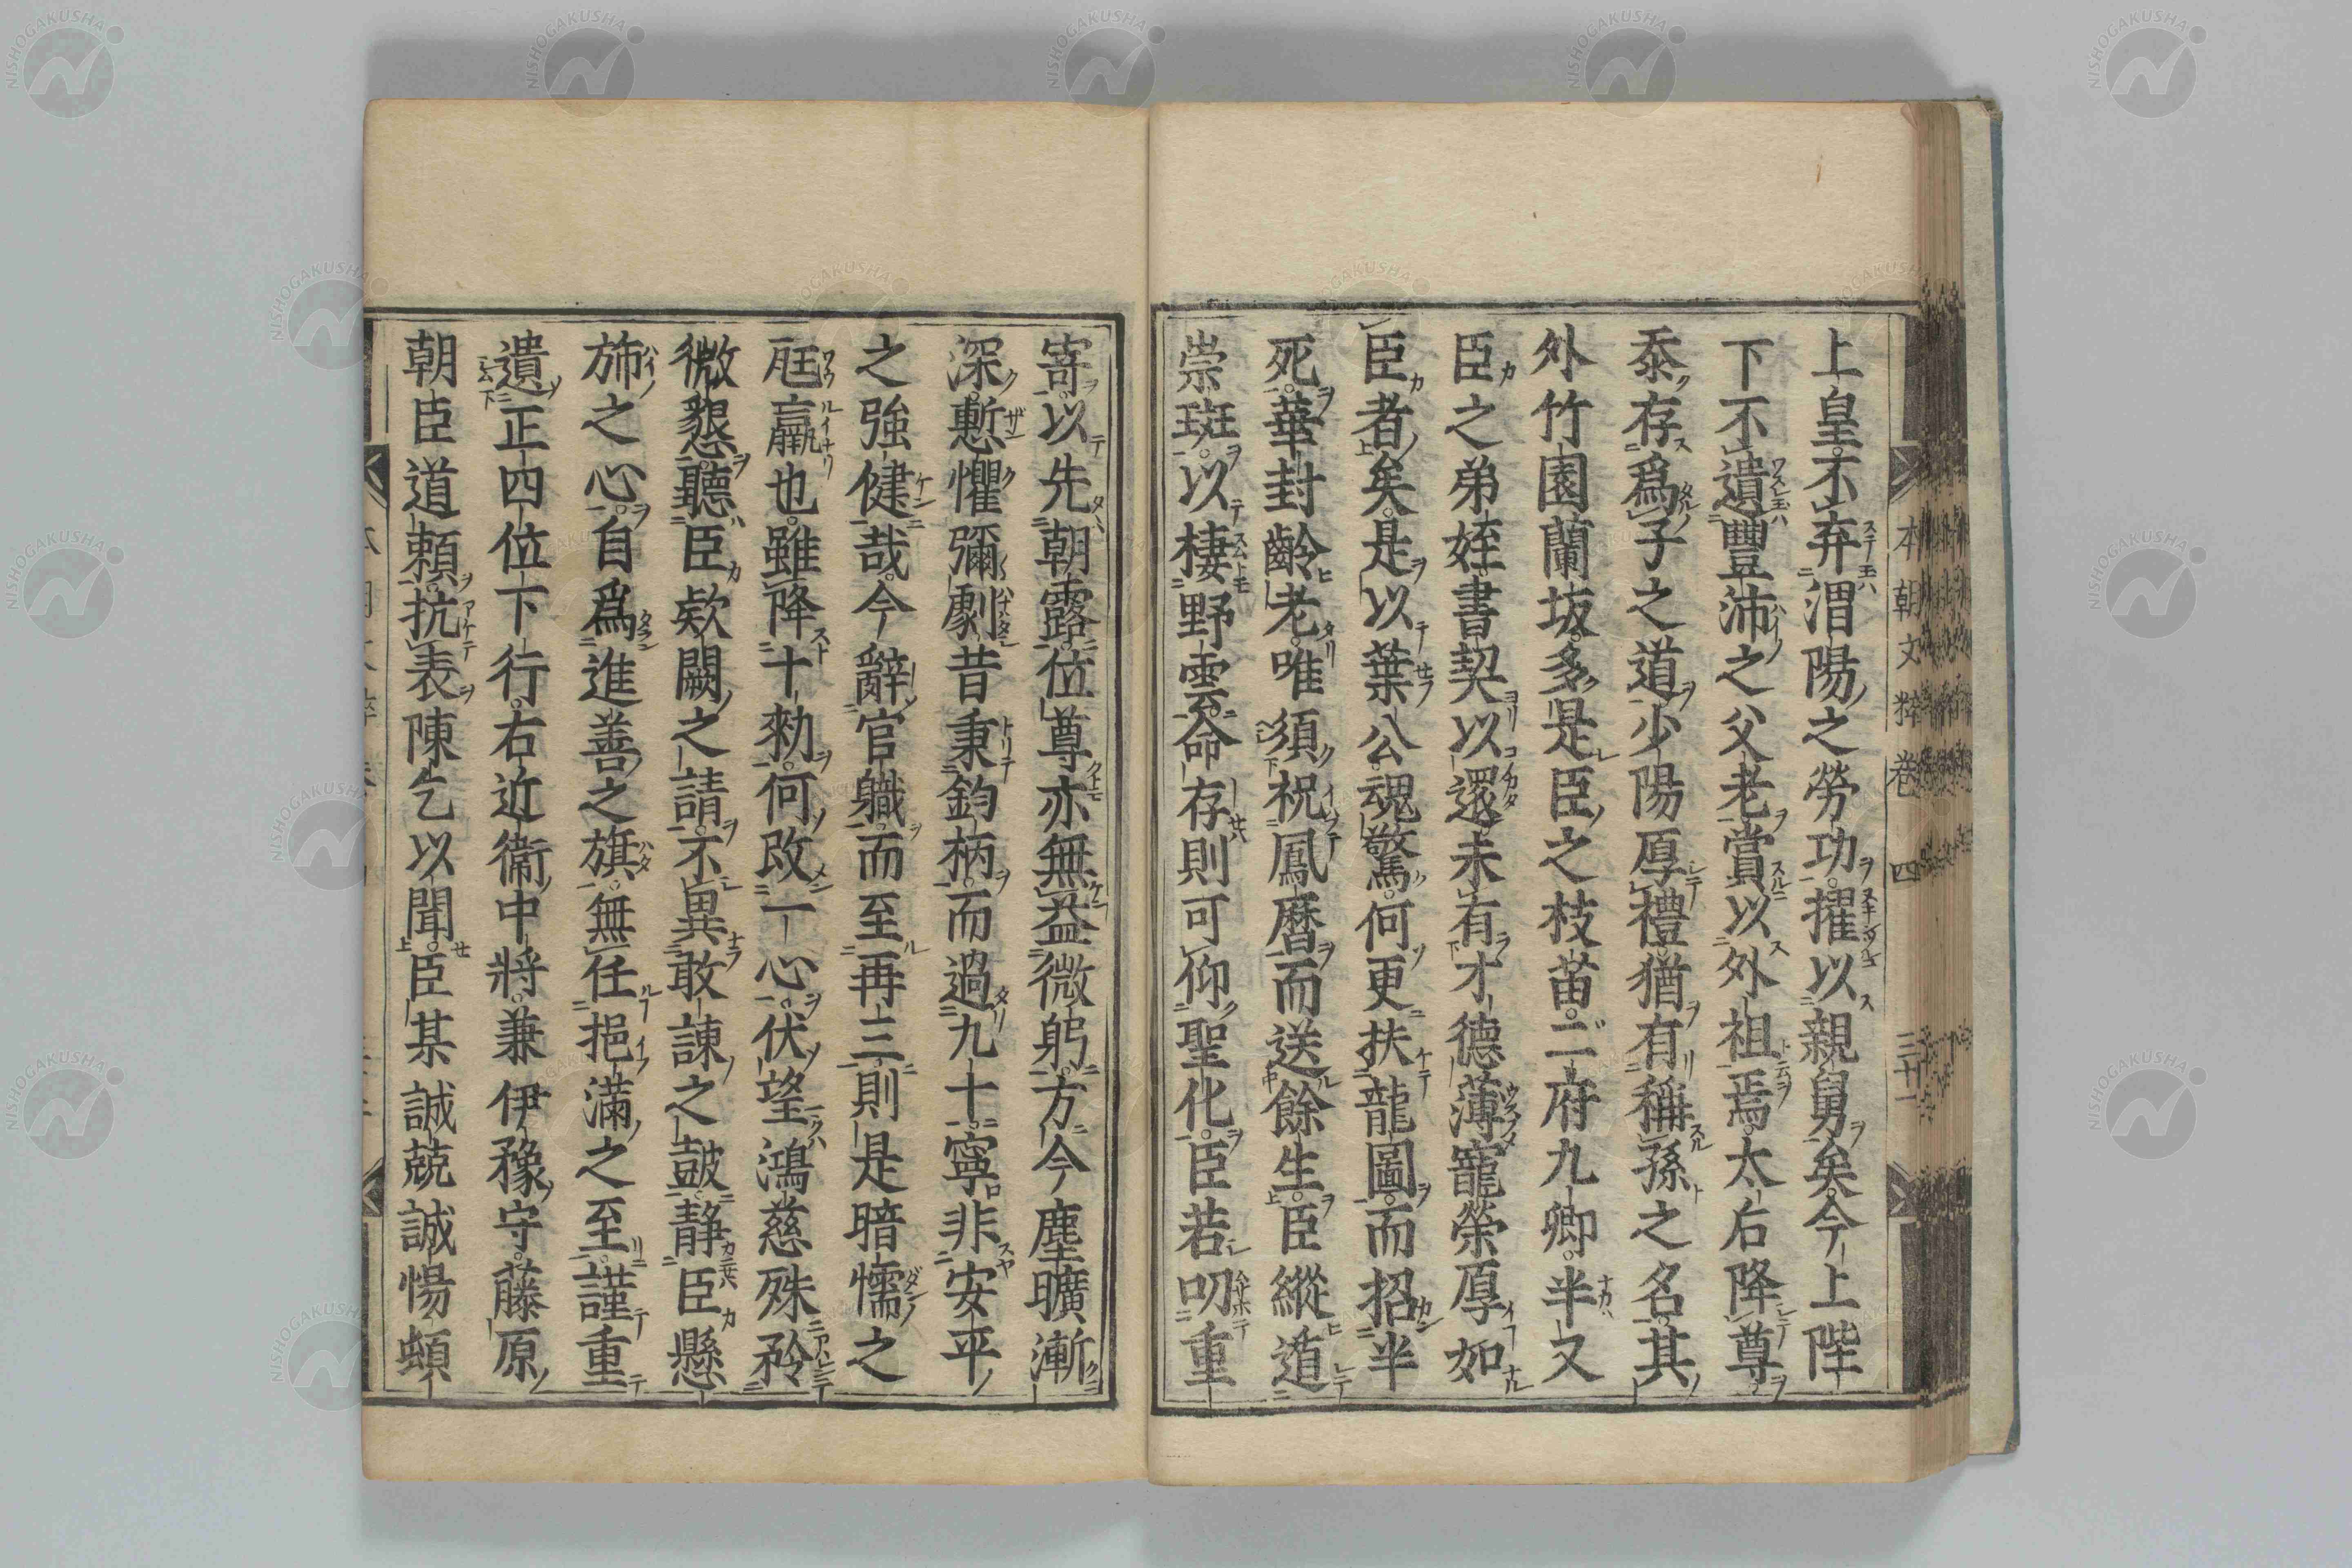 上皇不弃渭陽之勞功擢以親舅矣今上陛
下不遺豐沛之父老賞以外祖焉太后降尊
忝存爲子之道少陽厚禮猶有稱孫之名其
外竹園蘭坂多是臣之枝苗二府九卿半又
臣之弟姪書契以還未有才德薄寵榮厚如
臣者矣是以葉公魂驚何更扶龍圖而招半
死華封齡老唯須祝鳳曆而送餘生臣縱遁
崇班以棲野雲命存則可仰聖化臣若叨重
本朝文粹卷四 三十一
寄以先朝露位尊亦無益微躬方今塵曠漸
深慙懼彌劇昔秉鈞柄而過九十寧非安平
之強健哉今辭官職而至再三則是暗懦之
尩羸也雖降十勅何改一心伏望鴻慈殊矜
微懇聽臣欵闕之請不異敢諫之鼓靜臣懸
斾之心自爲進善之旗無任挹滿之至謹重
遺正四位下行右近衞中將兼伊豫守藤原
朝臣道頼抗表陳乞以聞臣某誠兢誠惕頓
NISHOGAKUSHA